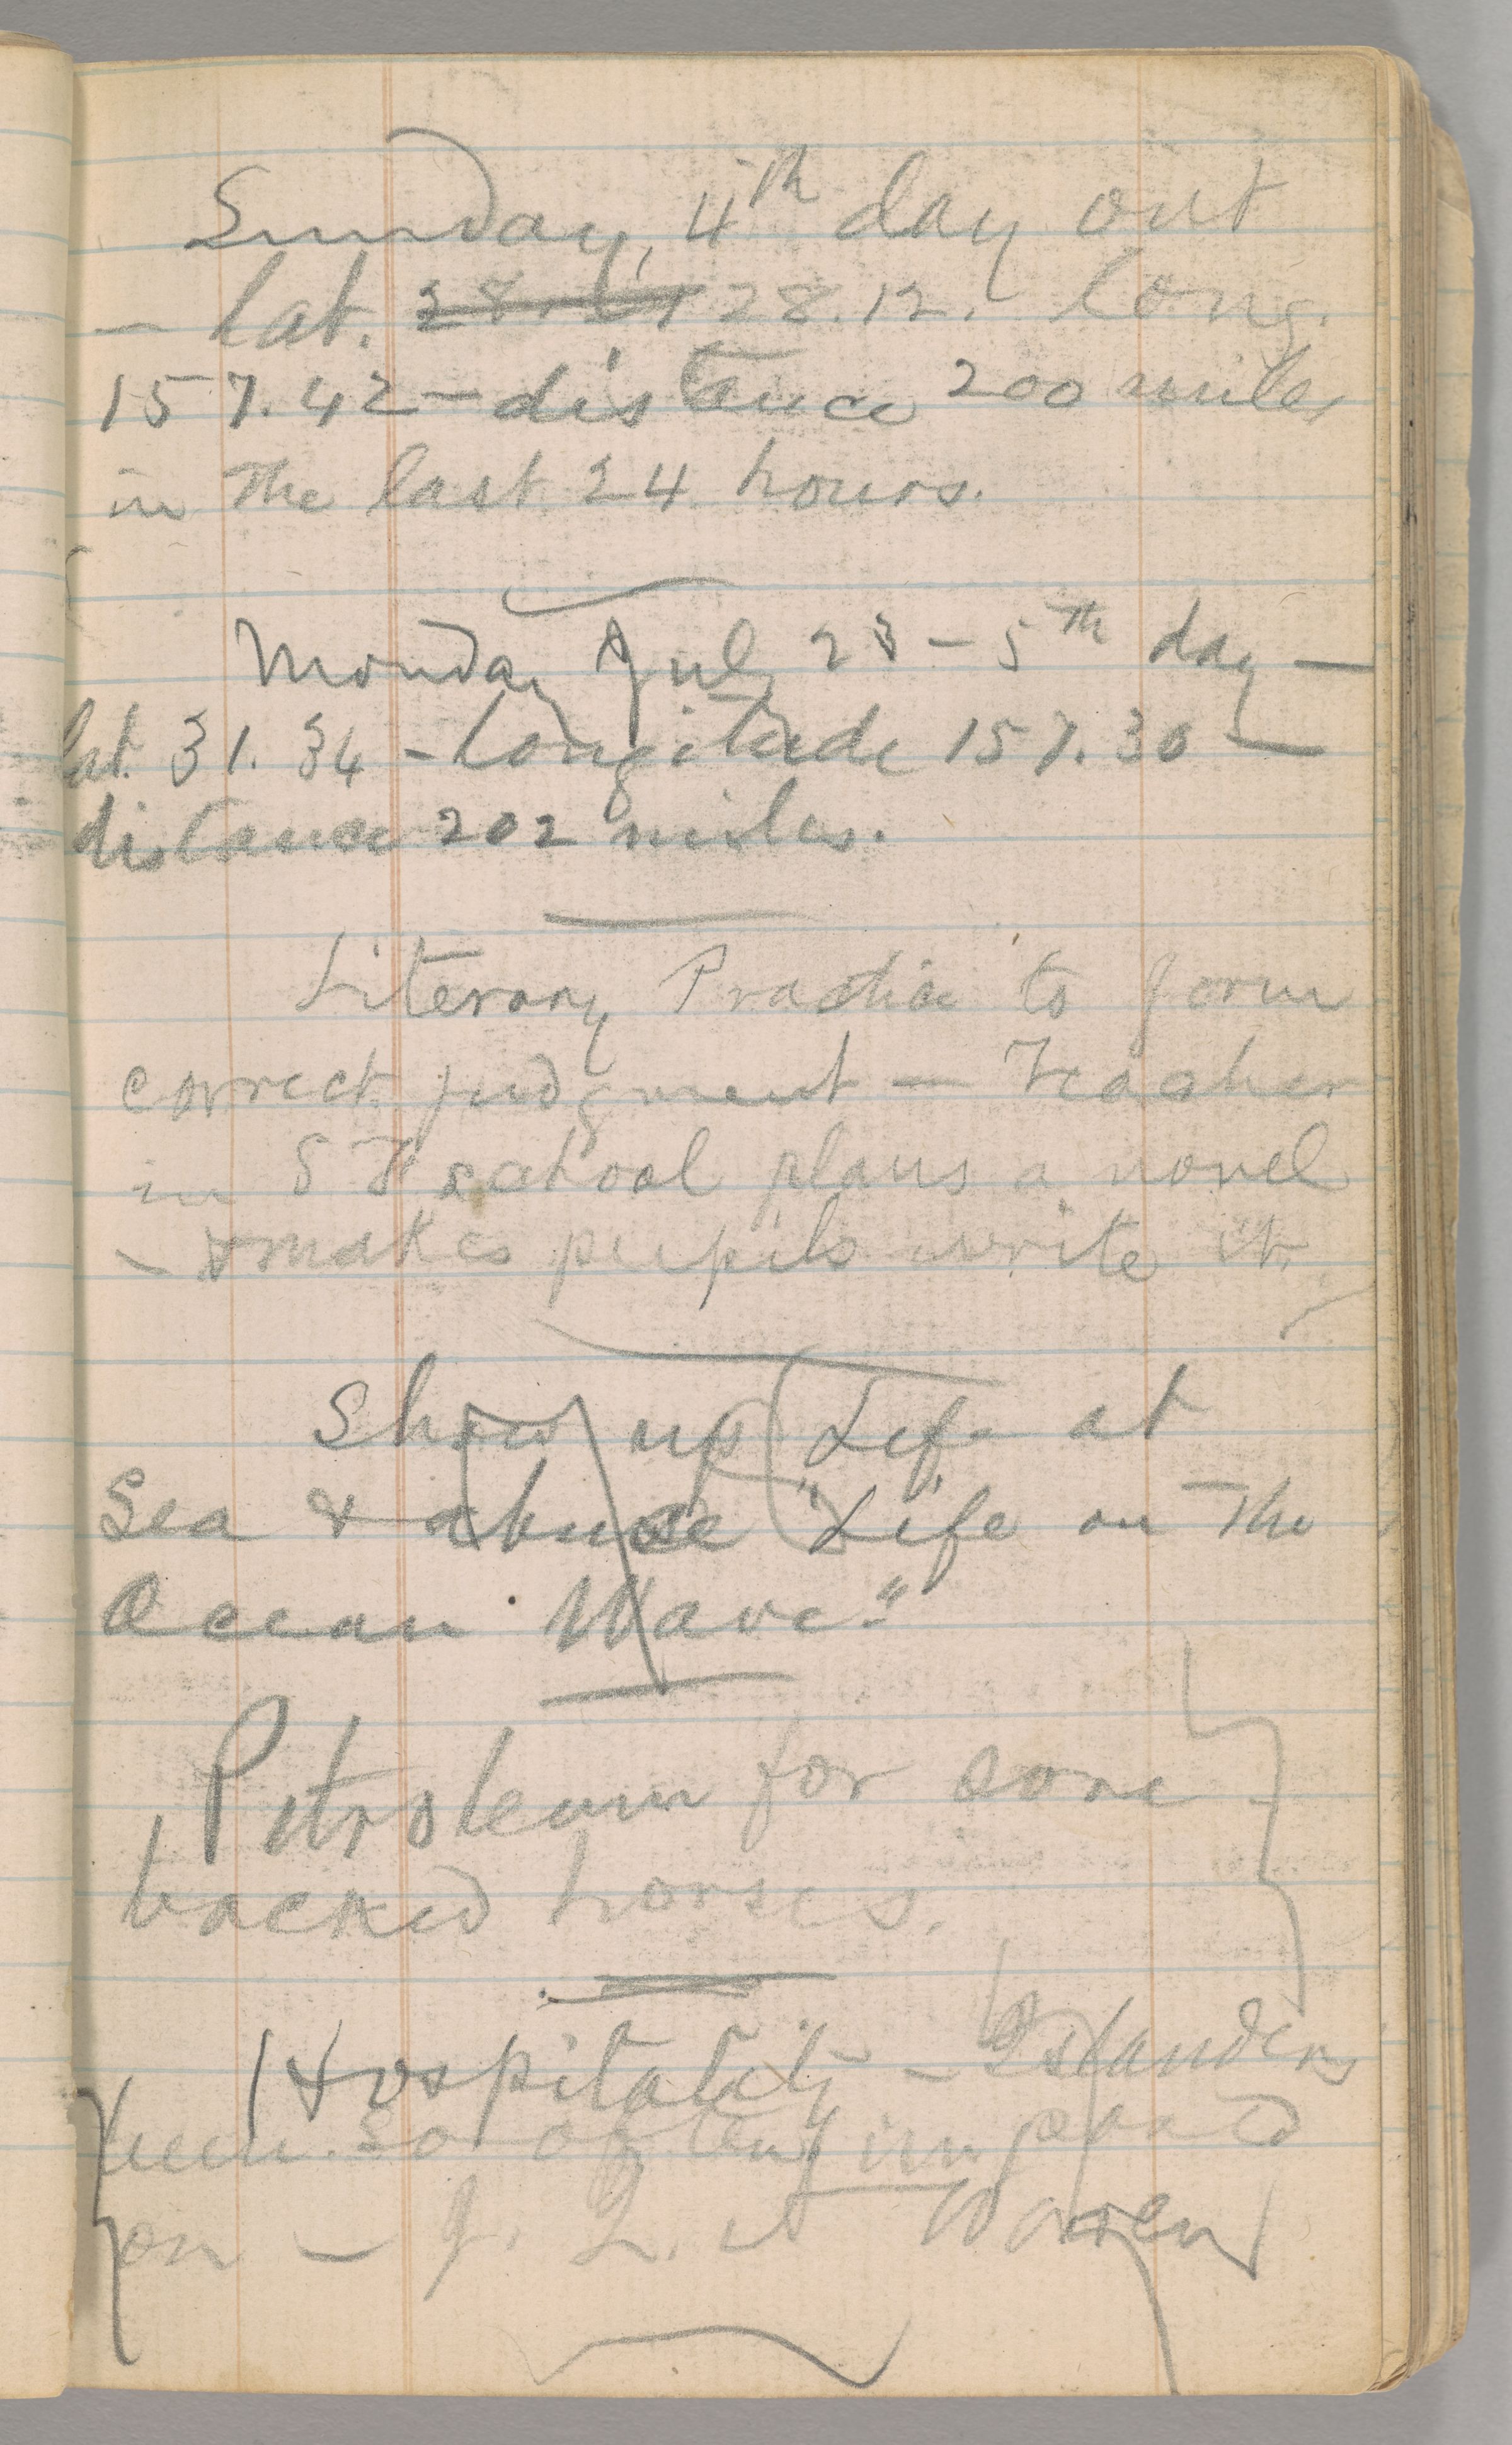 Sunday, 4th day out
— lat. 28.12. long.
157.42 — distance 200 miles
in the last 24 hours.
Monday July 23 – 5th day —
lat. 31.34 – longitude 157.30 —
distance 202 miles.
Literary Practice to form
correct judgment — Teacher
in S F school plans a novel
– & makes pupils write it.
Show up Life at
Sea & abuse "Life on the
Ocean Wave."
Petroleum for sore
backed horses.
Hospitality – Islanders
been so often imposed
on —